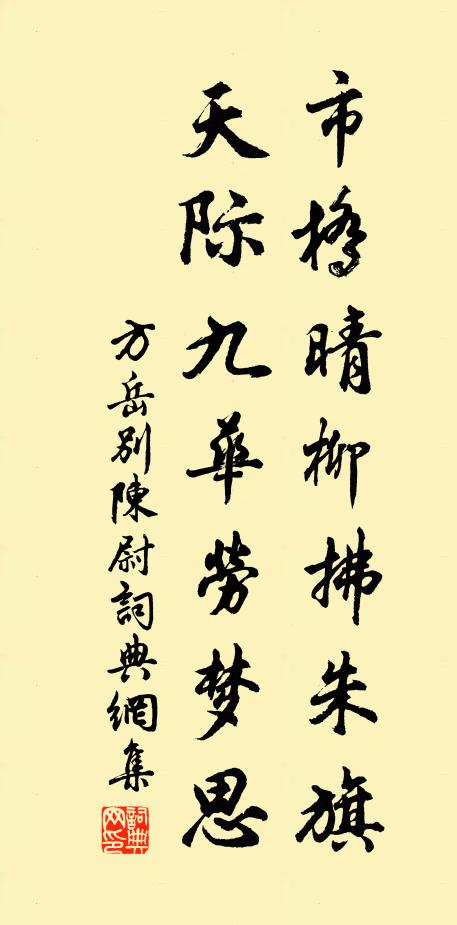 市橋晴柳拂朱旗
天际九華勞梦思
方岳別陳尉詞典網集
詞典網印